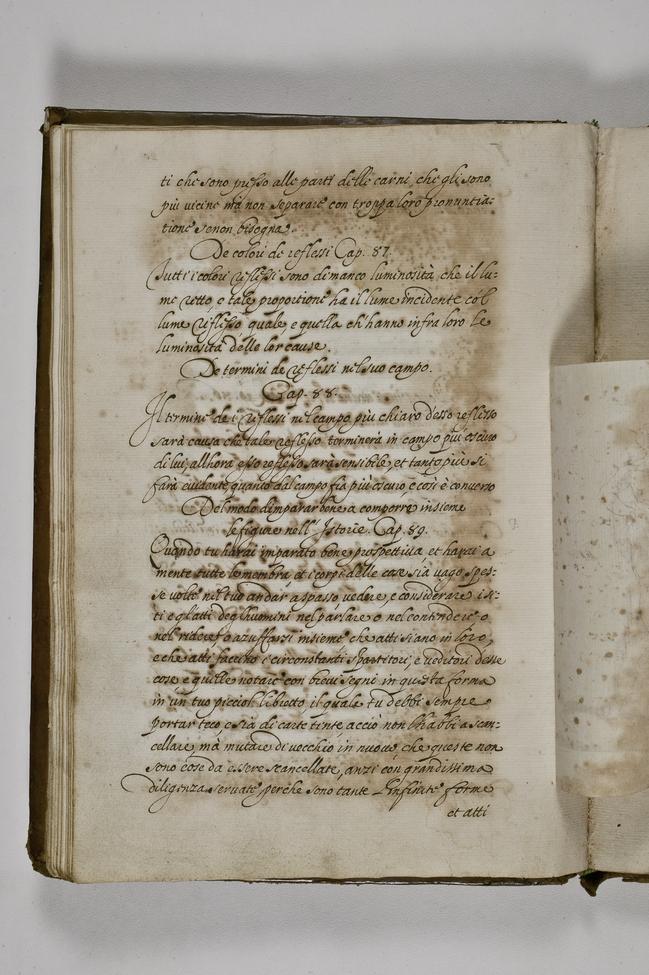 ti che sono presso alle parti delle carni, che gli sono
più vicine mà non separare con troppa loro pronuntia:
tione se non bisogna.
De colori de reflessi Cap. 87.
Tutti i colori reflessi sono di manco luminosità, che il lu:
me retto, e tale proportione ha il lume incidente co'l
lume reflesso quale, e quella ch'hanno infra loro le
luminosità delle lor cause.
De termini de reflessi nel suo campo.
Cap. 88.
Il termine de i reflessi nel campo più chiaro d'esso reflesso
sarà causa che tale reflesso terminerà in campo più oscuro
di lui, all'hora esso reflesso sarà sensibile, et tanto più si
farà evidente quanto dal campo fia più oscuro e così è converso
Del modo d'imparar bene a comporre insieme
le figure nell'Istorie. Cap. 89.
Quando tu harai imparato bene prospettiva et harai a
mente tutte le membra et i corpi delle cose sia vago spes:
se volte nel tuo andar a spasso vedere, e considerare i si:
ti e gl'atti degl'huomini nel parlare o nel contendere o
nel ridere o azuffarsi insieme che atti siano in loro,
e che atti faccino i circonstanti spartitori, e veditori d'esse
cose e quelle notare con brevi segni in questa forma
in un tuo picciol libretto il quale tu debbi sempre
portar teco, e sia di carte tinte acciò non l'habbi a scan:
cellare, mà mutare di vecchio in nuovo che queste non
sono cose da essere scancellate, anzi con grandissima
diligenza servate perche sono tante l'infinite forme
et atti